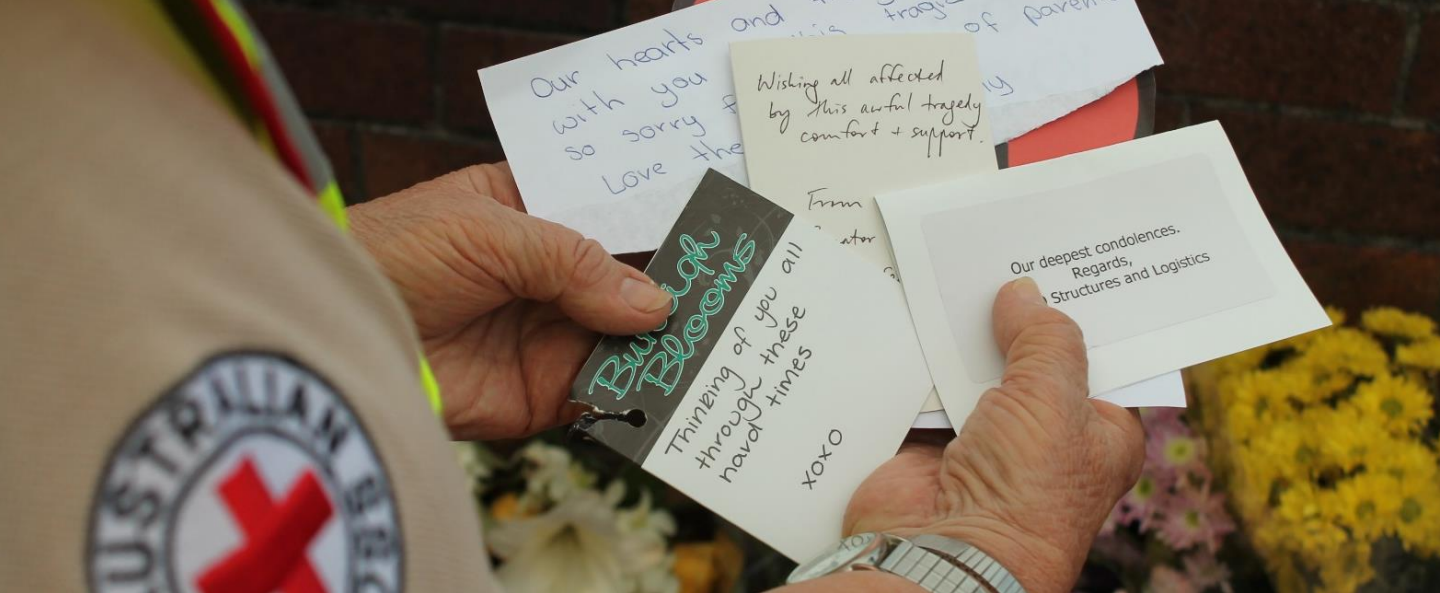 Our hearts and
with you this tragic of paren
so sorry
Love the
Wishing all affected
by this awful tragedy
comfort + support.
From
ator
Our deepest condolences.
Regards,
Structures and Logistics
Blooms
Thinking of you all
through these
hard times
xoxo
AUSTRALIAN RED